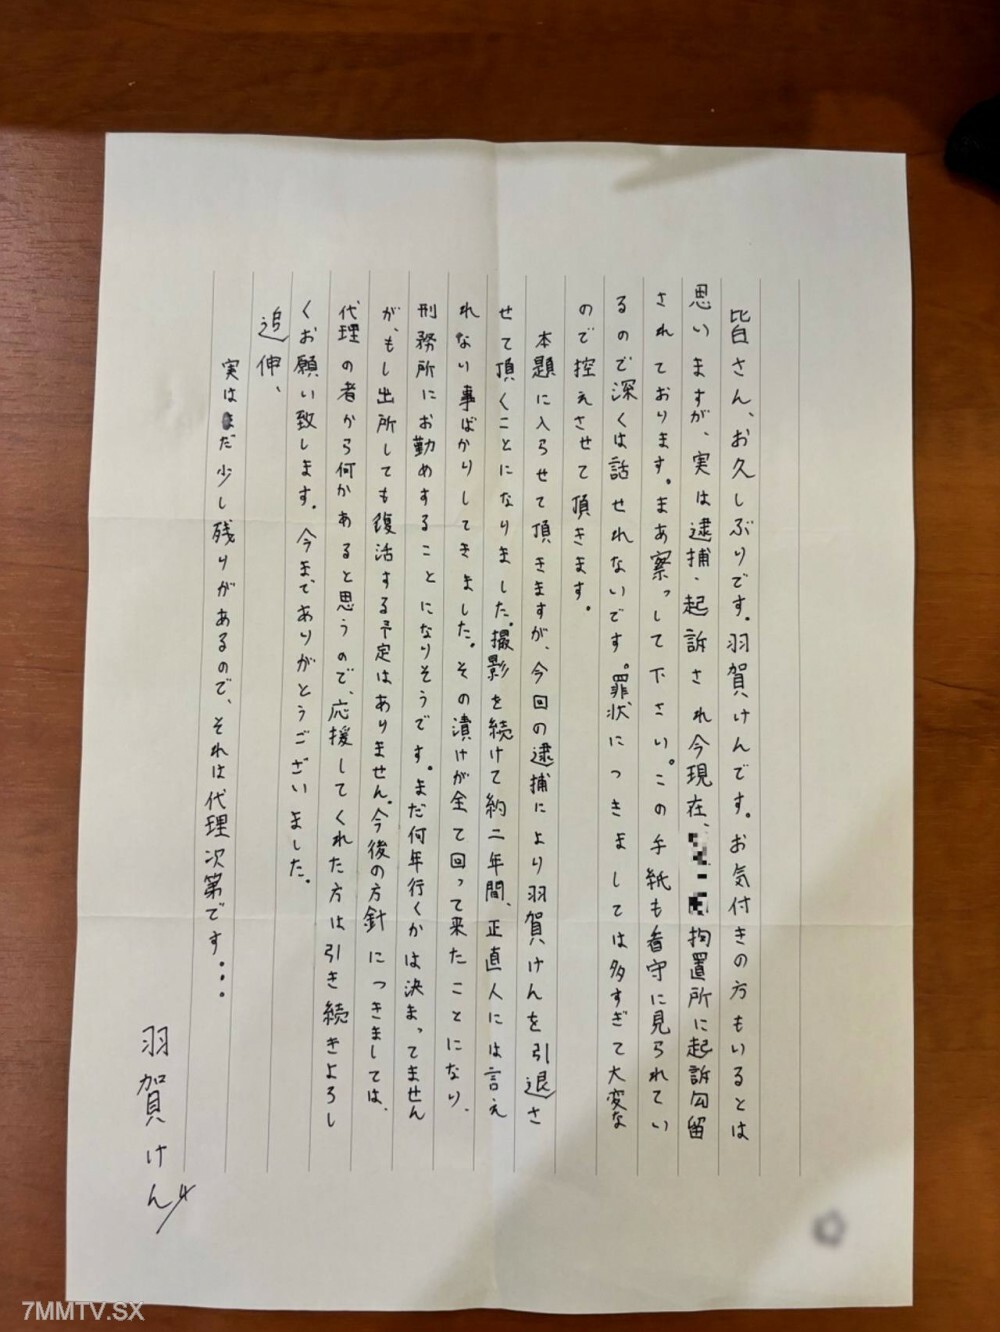 皆さん、お久しぶりです。羽賀けんです。お気付きの方もいるとは
思いますが、実は逮捕・起訴され今現在、拘置所に起訴勾留
されております。まあ察っして下さい。この手紙も看守に見られてい
るので深くは話せれないです。罪状につきましては多すぎて大変な
ので控えさせて頂きます。
本題に入らせて頂きますが、今回の逮捕により羽賀けんを引退さ
せて頂くことになりました。撮影を続けて約二年間、正直人には言え
れない事ばかりしてきました。その漬けが全て回って来たことになり、
刑務所にお勤めすることになりそうです。まだ何年行くかは決まってません
が、もし出所しても復活する予定はありません。今後の方針につきましては、
代理の者から何かあると思うので、応援してくれた方は引き続きよろし
くお願い致します。今までありがとうございました。
追伸、
実はまだ少し残りがあるので、それは代理次第です...
羽賀けん
7MMTV.SX